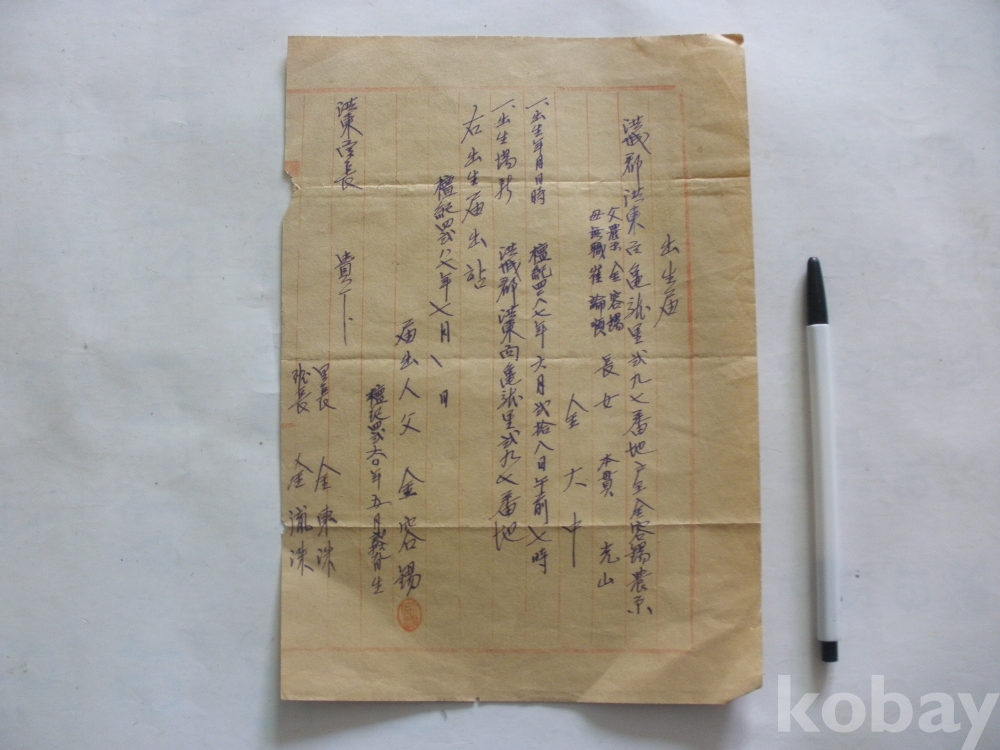 出生届
洪城郡洪東面龜龍里弍九七番地戶主金容錫農業
父農業 金容錫
母無職 崔 順
長女 本貫 光山
金大中
一、出生年月日時 檀紀四二八七年六月弍拾八日午前七時
一、出生場所 洪城郡洪東面龜龍里弍九七番地
右出生届出
檀紀四弍八七年七月 日
届出人父 金容錫
檀紀四弍六〇年五月 生
洪東面長 貴下
里長 金東洙
班長 金 洙
kobay